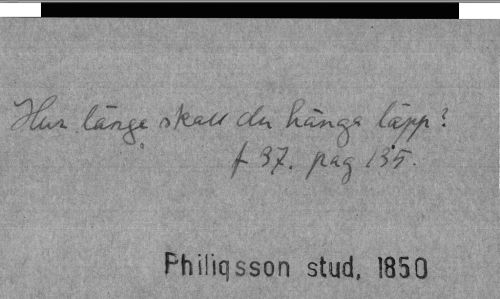 Hur länge skall du hänga läpp?
f 37. pag 135.
Philiqsson stud, 1850